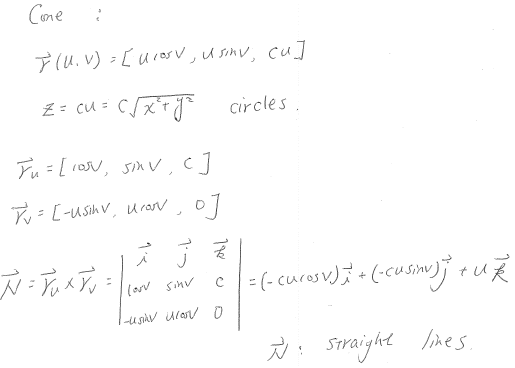 Cone :
r⃗(u.v) = [u cosv, u sinv, cu]
z = cu = C√(x²+y²) circles.
r⃗u = [cosv, sinv, c]
r⃗v = [-usinv, ucosv, 0]
N⃗ = r⃗u × r⃗v = | i⃗ j⃗ k⃗ | = (-cucosv)i⃗ + (-cusinv)j⃗ + uk⃗
cosv sinv c
-usinv ucosv 0
N⃗ : straight lines.